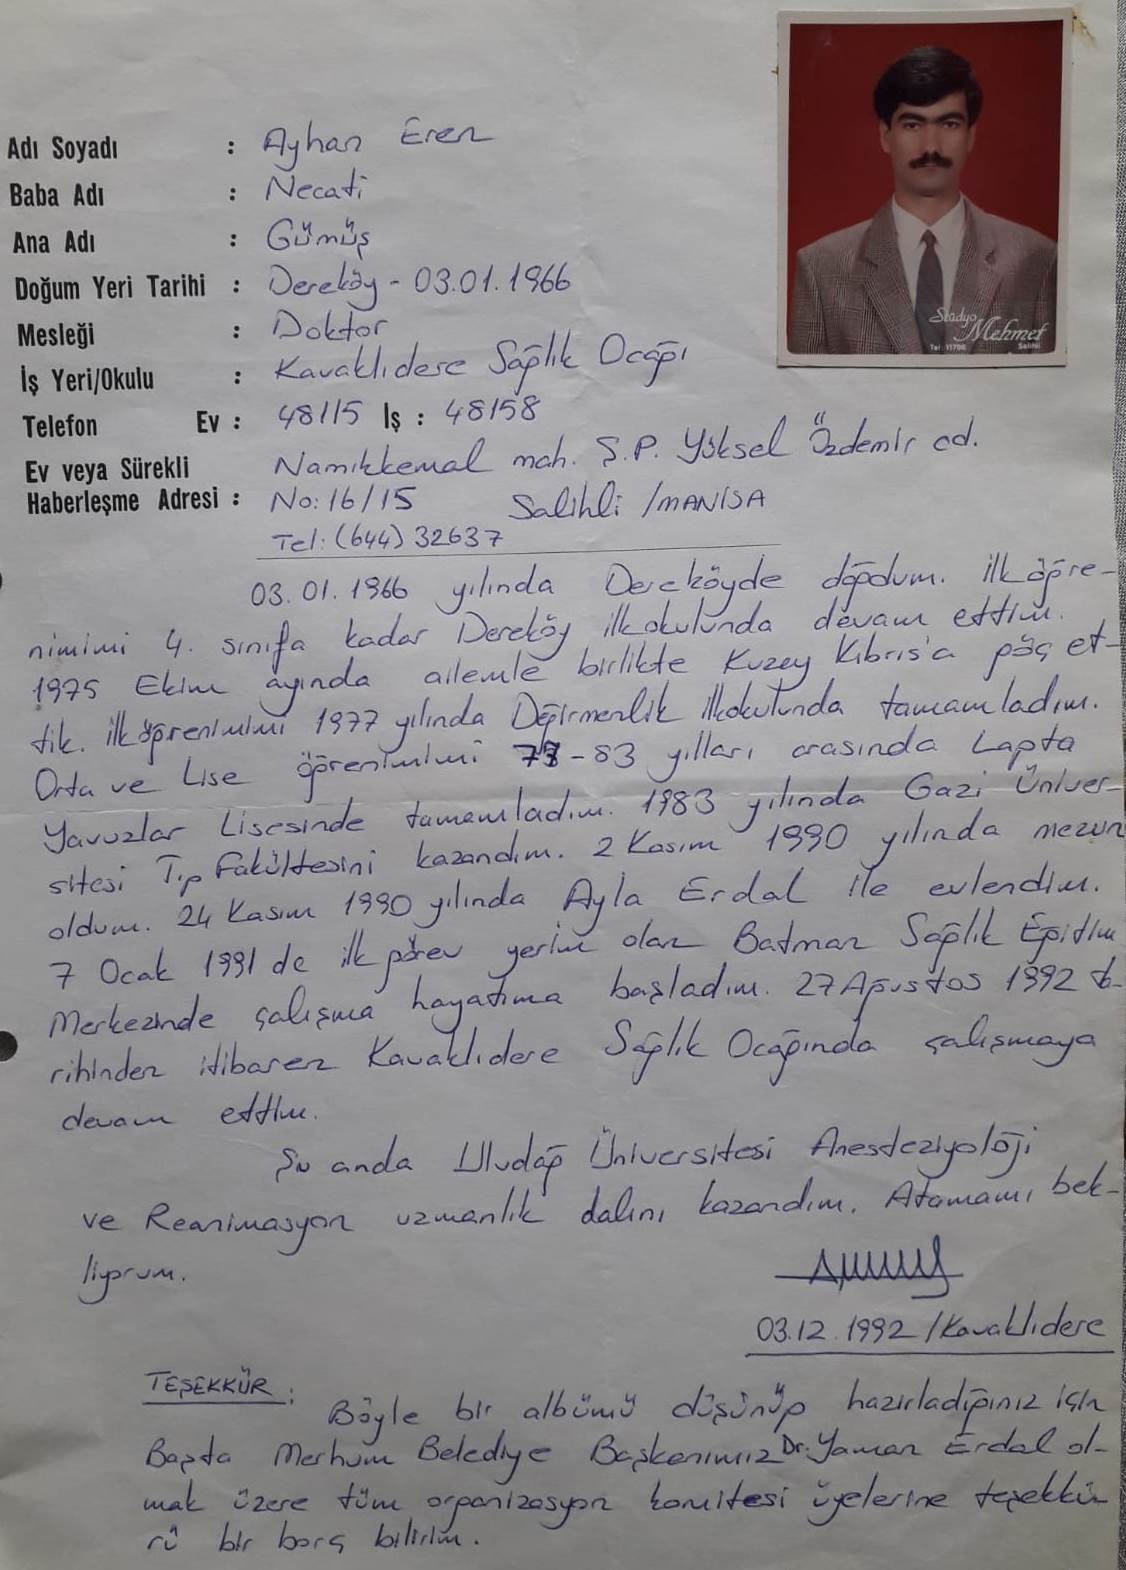 Adı Soyadı : Ayhan Eren
Baba Adı : Necati
Ana Adı : Gümüş
Doğum Yeri Tarihi : Dereköy - 03.01.1966
Mesleği : Doktor
İş Yeri/Okulu : Kavaklıdere Sağlık Ocağı
Telefon Ev : 48115 İş : 48158
Ev veya Sürekli Namıkkemal mah. Ş.P. Yüksel Özdemir cd.
Haberleşme Adresi : No: 16/15 Salihli /MANİSA
Tel: (644) 32637
Stüdyo
Mehmet
Tel: 11700 Salihli
03.01.1966 yılında Dereköyde doğdum. ilköğre-
nimimi 4. sınıfa kadar Dereköy ilkokulunda devam ettim.
1975 Ekim ayında ailemle birlikte Kuzey Kıbrıs'a göç et-
tik. ilköğrenimimi 1977 yılında Değirmenlik ilkokulunda tamamladım.
Orta ve Lise öğrenimimi -83 yılları arasında Lapta
Yavuzlar Lisesinde tamamladım. 1983 yılında Gazi Üniver-
sitesi Tıp Fakültesini kazandım. 2 Kasım 1990 yılında mezun
oldum. 24 Kasım 1990 yılında Ayla Erdal ile evlendim.
7 Ocak 1991 de ilk görev yerim olan Batman Sağlık Eğitim
Merkezinde çalışma hayatıma başladım. 27 Ağustos 1992 ta-
rihinden itibaren Kavaklıdere Sağlık Ocağında çalışmaya
devam ettim.
Şu anda Uludağ Üniversitesi Anesteziyoloji
ve Reanimasyon uzmanlık dalını kazandım. Atamamı bek-
liyorum.
03.12.1992 /Kavaklıdere
TEŞEKKÜR :
Böyle bir albümü düşünüp hazırladığınız için
Başta Merhum Belediye Başkanımız Dr. Yaman Erdal ol-
mak üzere tüm organizasyon komitesi üyelerine teşekkü-
rü bir borç bilirim.